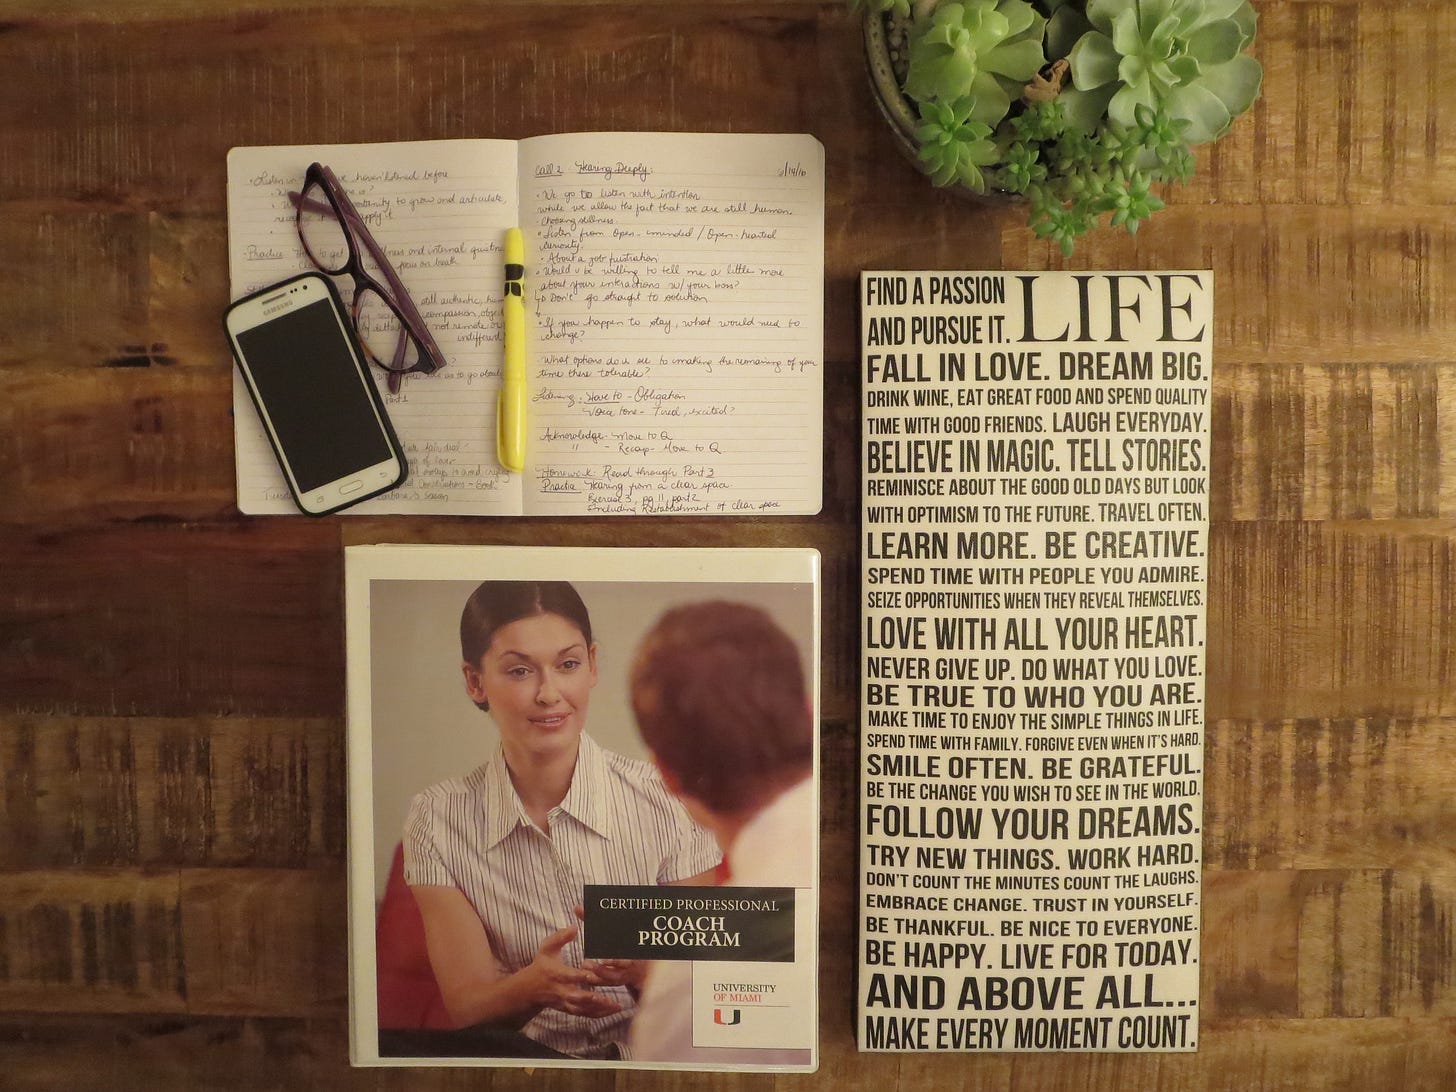 Listen in
haven't listened before
opportunity to grow and articulate,
apply it
Practice
to get
stillness and internal quietness
focus on breath
still authentic, human
compassion, object
not remote or
indifferent
us to go about
Part 1
Call 2 Hearing Deeply: 6/14/16
• We go to listen with intention
while we allow the fact that we are still human.
• Choosing stillness.
• Listen from Open-minded / Open-hearted
curiosity.
• About a job frustration
• Would u be willing to tell me a little more
about your interactions w/ your boss?
Don't go straight to solution
• If you happen to stay, what would need to
change?
• What options do u see to making the remaining of your
time there tolerable?
Listening: Have to - Obligation
Voice tone - Tired, excited?
Acknowledge - Move to Q
" - Recap - Move to Q.
Homework: Read through Part 3
Practice Hearing from a clear space.
Exercise 3, pg 11, part 2
Including Reestablishment of clear space
SAMSUNG
CERTIFIED PROFESSIONAL
COACH
PROGRAM
UNIVERSITY
OF MIAMI
U
FIND A PASSION
AND PURSUE IT. LIFE
FALL IN LOVE. DREAM BIG.
DRINK WINE, EAT GREAT FOOD AND SPEND QUALITY
TIME WITH GOOD FRIENDS. LAUGH EVERYDAY.
BELIEVE IN MAGIC. TELL STORIES.
REMINISCE ABOUT THE GOOD OLD DAYS BUT LOOK
WITH OPTIMISM TO THE FUTURE. TRAVEL OFTEN.
LEARN MORE. BE CREATIVE.
SPEND TIME WITH PEOPLE YOU ADMIRE.
SEIZE OPPORTUNITIES WHEN THEY REVEAL THEMSELVES.
LOVE WITH ALL YOUR HEART.
NEVER GIVE UP. DO WHAT YOU LOVE.
BE TRUE TO WHO YOU ARE.
MAKE TIME TO ENJOY THE SIMPLE THINGS IN LIFE.
SPEND TIME WITH FAMILY. FORGIVE EVEN WHEN IT'S HARD.
SMILE OFTEN. BE GRATEFUL.
BE THE CHANGE YOU WISH TO SEE IN THE WORLD.
FOLLOW YOUR DREAMS.
TRY NEW THINGS. WORK HARD.
DON'T COUNT THE MINUTES COUNT THE LAUGHS.
EMBRACE CHANGE. TRUST IN YOURSELF.
BE THANKFUL. BE NICE TO EVERYONE.
BE HAPPY. LIVE FOR TODAY.
AND ABOVE ALL...
MAKE EVERY MOMENT COUNT.